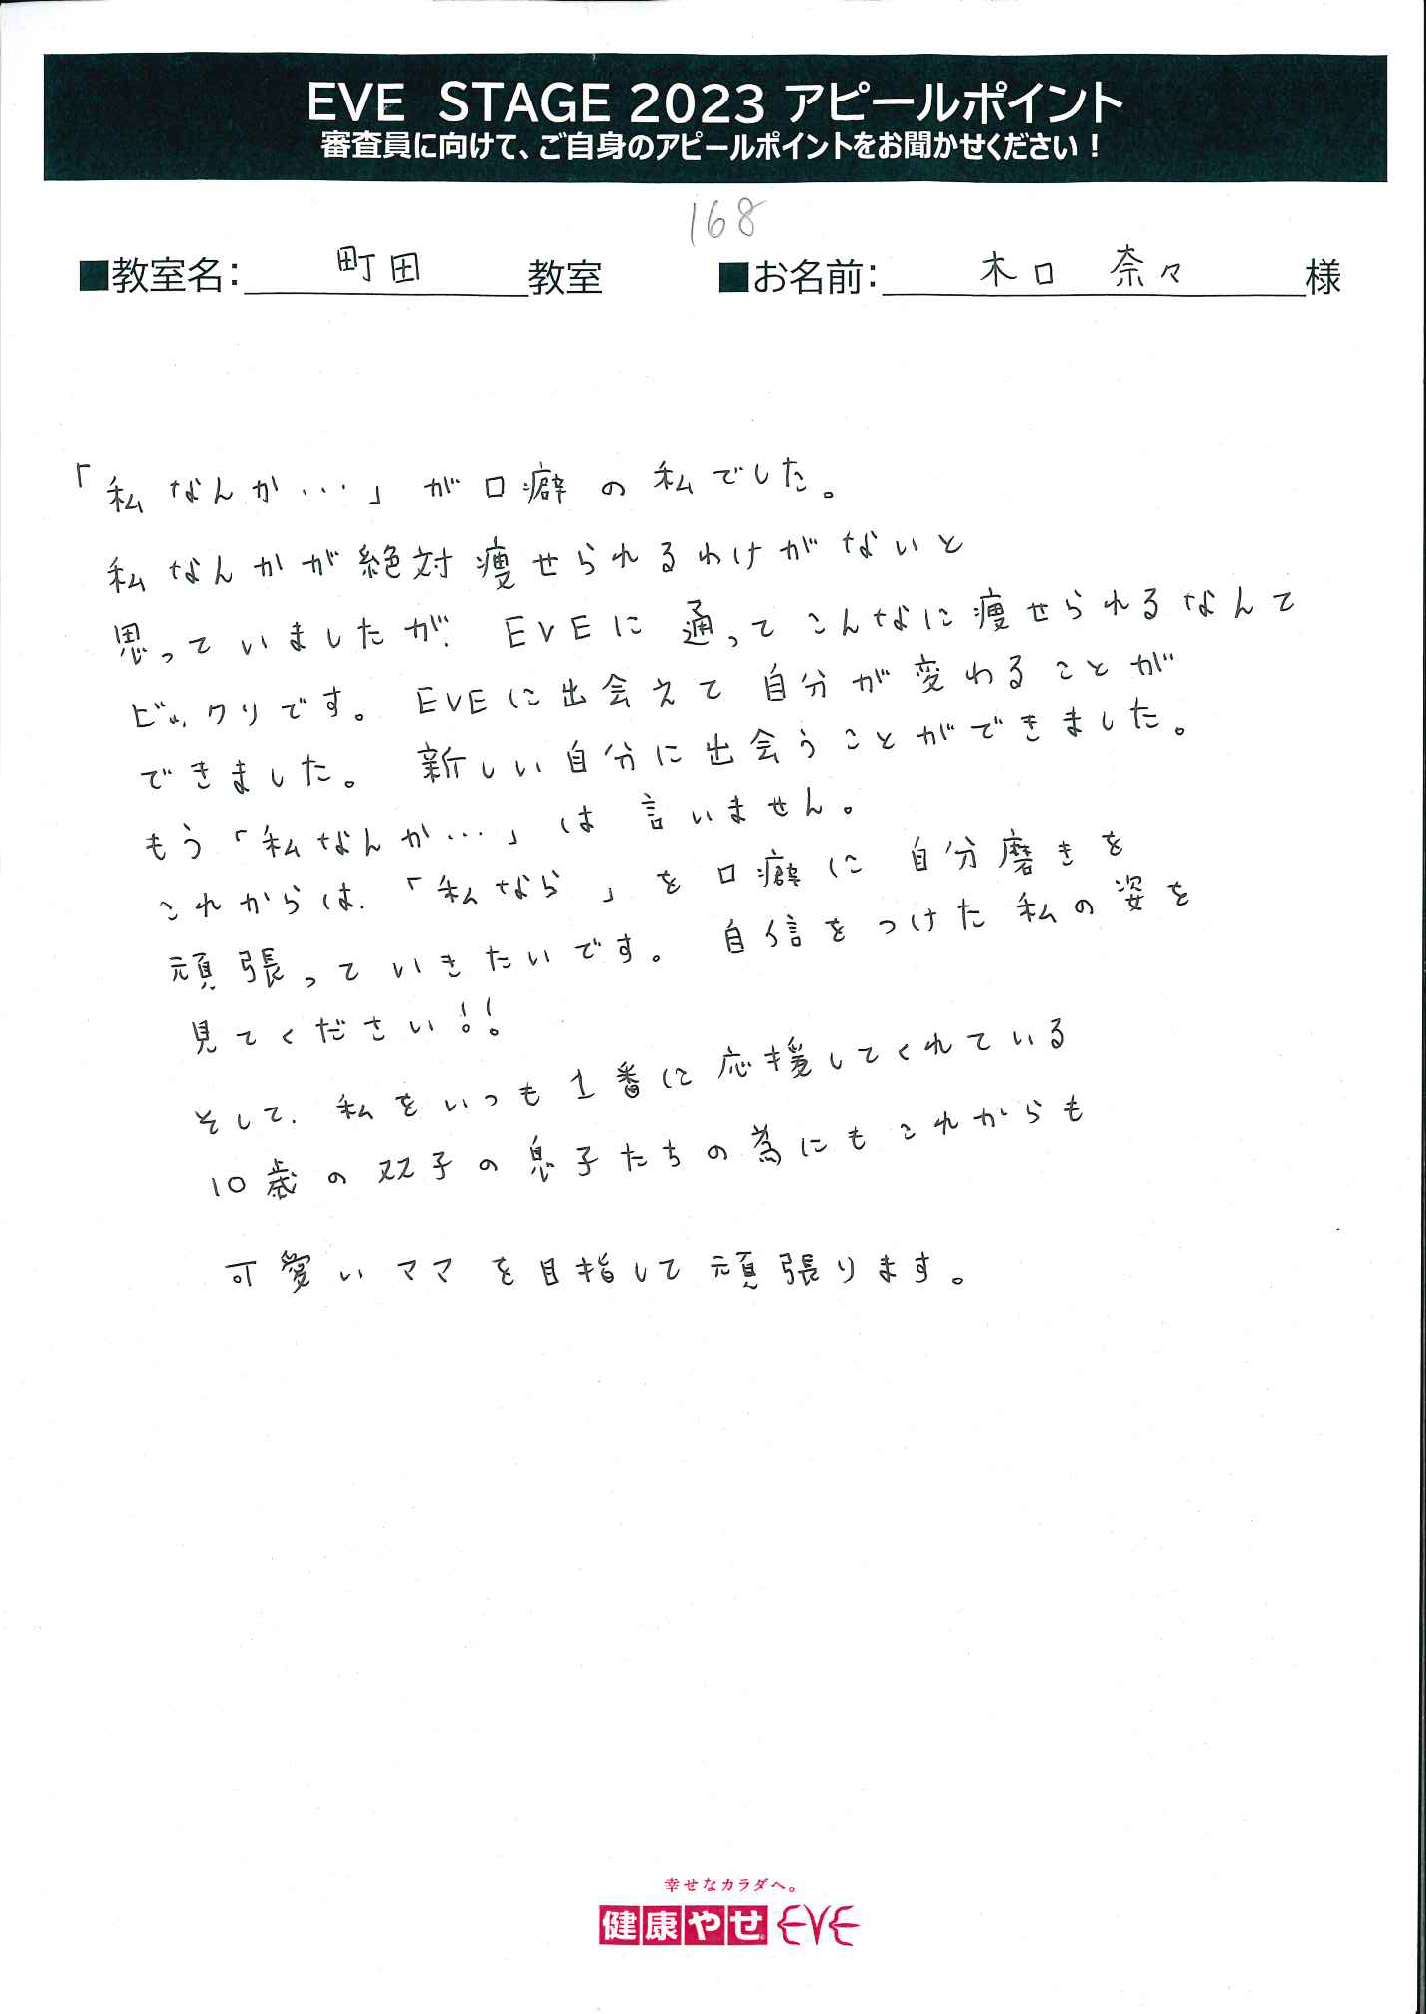 EVE STAGE 2023 アピールポイント
審査員に向けて、ご自身のアピールポイントをお聞かせください！
168
■教室名：町田教室 ■お名前：木口 奈々様
「私なんか…」が口癖の私でした。
私なんかが絶対痩せられるわけがないと
思っていましたが、EVEに通ってこんなに痩せられるなんて
ビックリです。EVEに出会えて自分が変わることが
できました。新しい自分に出会うことができました。
もう「私なんか…」は言いません。
これからは、「私なら」を口癖に自分磨きを
頑張っていきたいです。自信をつけた私の姿を
見てください!!
そして、私をいつも1番に応援してくれている
10歳の双子の息子たちの為にもこれからも
可愛いママを目指して頑張ります。
幸せなカラダへ。
健康やせEVE